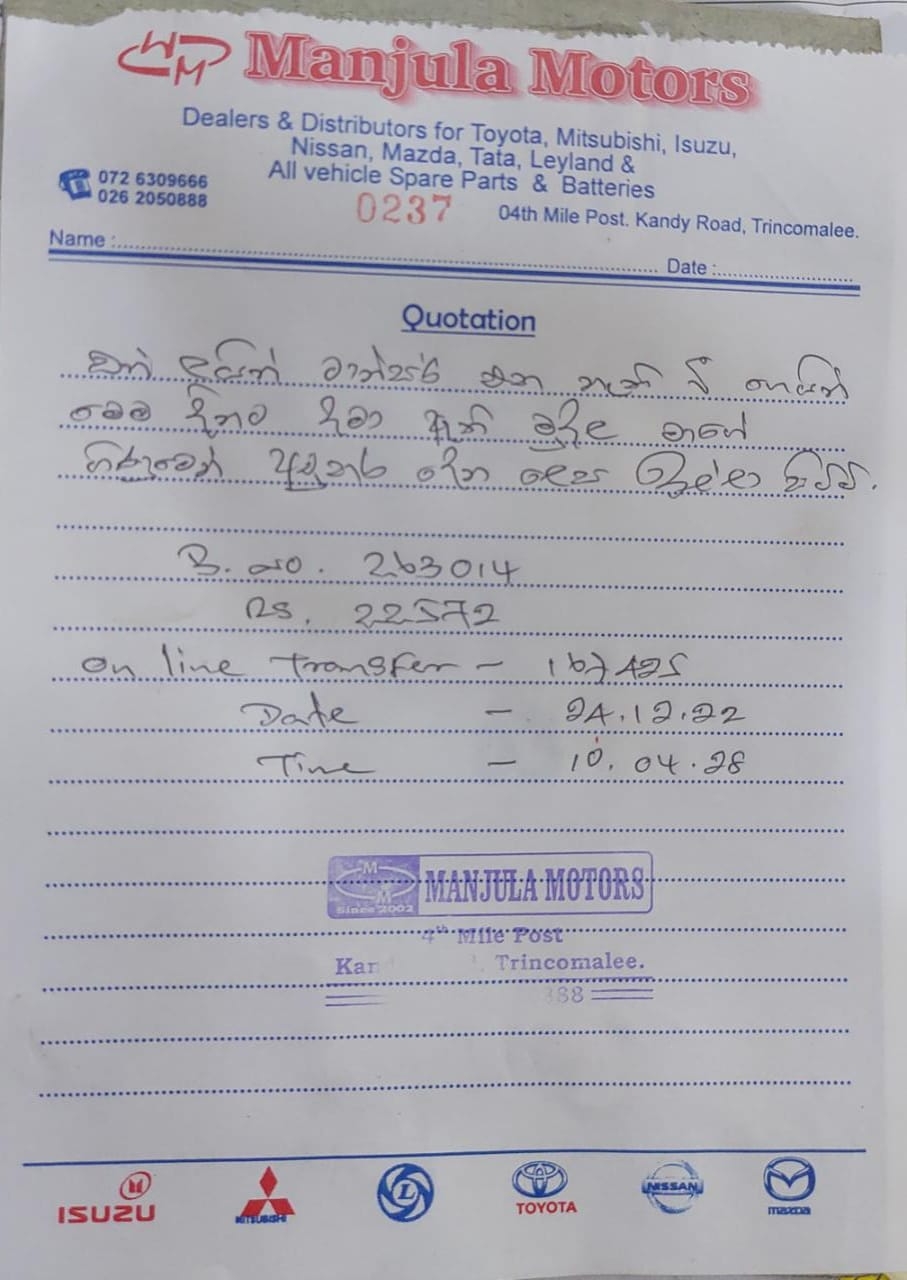 WM Manjula Motors
Dealers & Distributors for Toyota, Mitsubishi, Isuzu,
Nissan, Mazda, Tata, Leyland &
All vehicle Spare Parts & Batteries
072 6309666
026 2050888
0237
04th Mile Post. Kandy Road, Trincomalee.
Name :
Date :
Quotation
නැති වී
මෙම දිනට දමා ඇති මුදල මාගේ
ගිණුමෙන් දෙන ලෙස ඉල්ලා සිටිමි.
B. නො. 263014
RS. 22572
on line Transfer - 167425
Date - 24.12.22
Time - 10.04.28
M M Since 2002 MANJULA MOTORS
4th Mile Post
Kan Trincomalee.
888
ISUZU
MITSUBISHI
L
TOYOTA
NISSAN
mazda